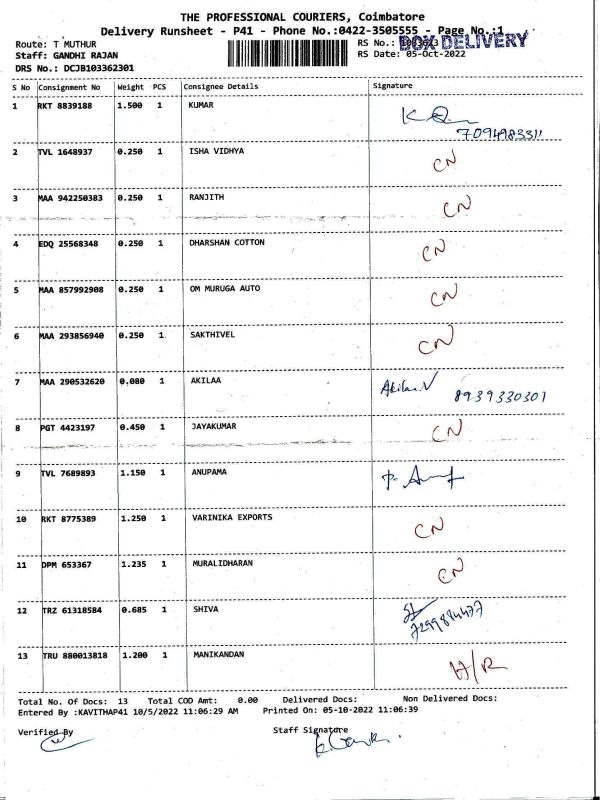 THE PROFESSIONAL COURIERS, Coimbatore
Delivery Runsheet - P41 - Phone No.:0422-3505555 - Page No.:1
BOX DELIVERY
Route: T MUTHUR RS No.:
Staff: GANDHI RAJAN RS Date: 05-Oct-2022
DRS No.: DCJB103362301
S No Consignment No Weight PCS Consignee Details Signature
1 RKT 8839188 1.500 1 KUMAR
7094983311
2 TVL 1648937 0.250 1 ISHA VIDHYA CN
3 MAA 942250383 0.250 1 RANJITH CN
4 EDQ 25568348 0.250 1 DHARSHAN COTTON CN
5 MAA 857992908 0.250 1 OM MURUGA AUTO CN
6 MAA 293856940 0.250 1 SAKTHIVEL CN
7 MAA 290532620 0.080 1 AKILAA Akilaa.V 8939330301
8 PGT 4423197 0.450 1 JAYAKUMAR CN
9 TVL 7689893 1.150 1 ANUPAMA
10 RKT 8775389 1.250 1 VARINIKA EXPORTS CN
11 DPM 653367 1.235 1 MURALIDHARAN CN
12 TRZ 61318584 0.685 1 SHIVA
13 TRU 880013818 1.200 1 MANIKANDAN H/R
Total No. Of Docs: 13 Total COD Amt: 0.00 Delivered Docs: Non Delivered Docs:
Entered By :KAVITHAP41 10/5/2022 11:06:29 AM Printed On: 05-10-2022 11:06:39
Verified By Staff Signature